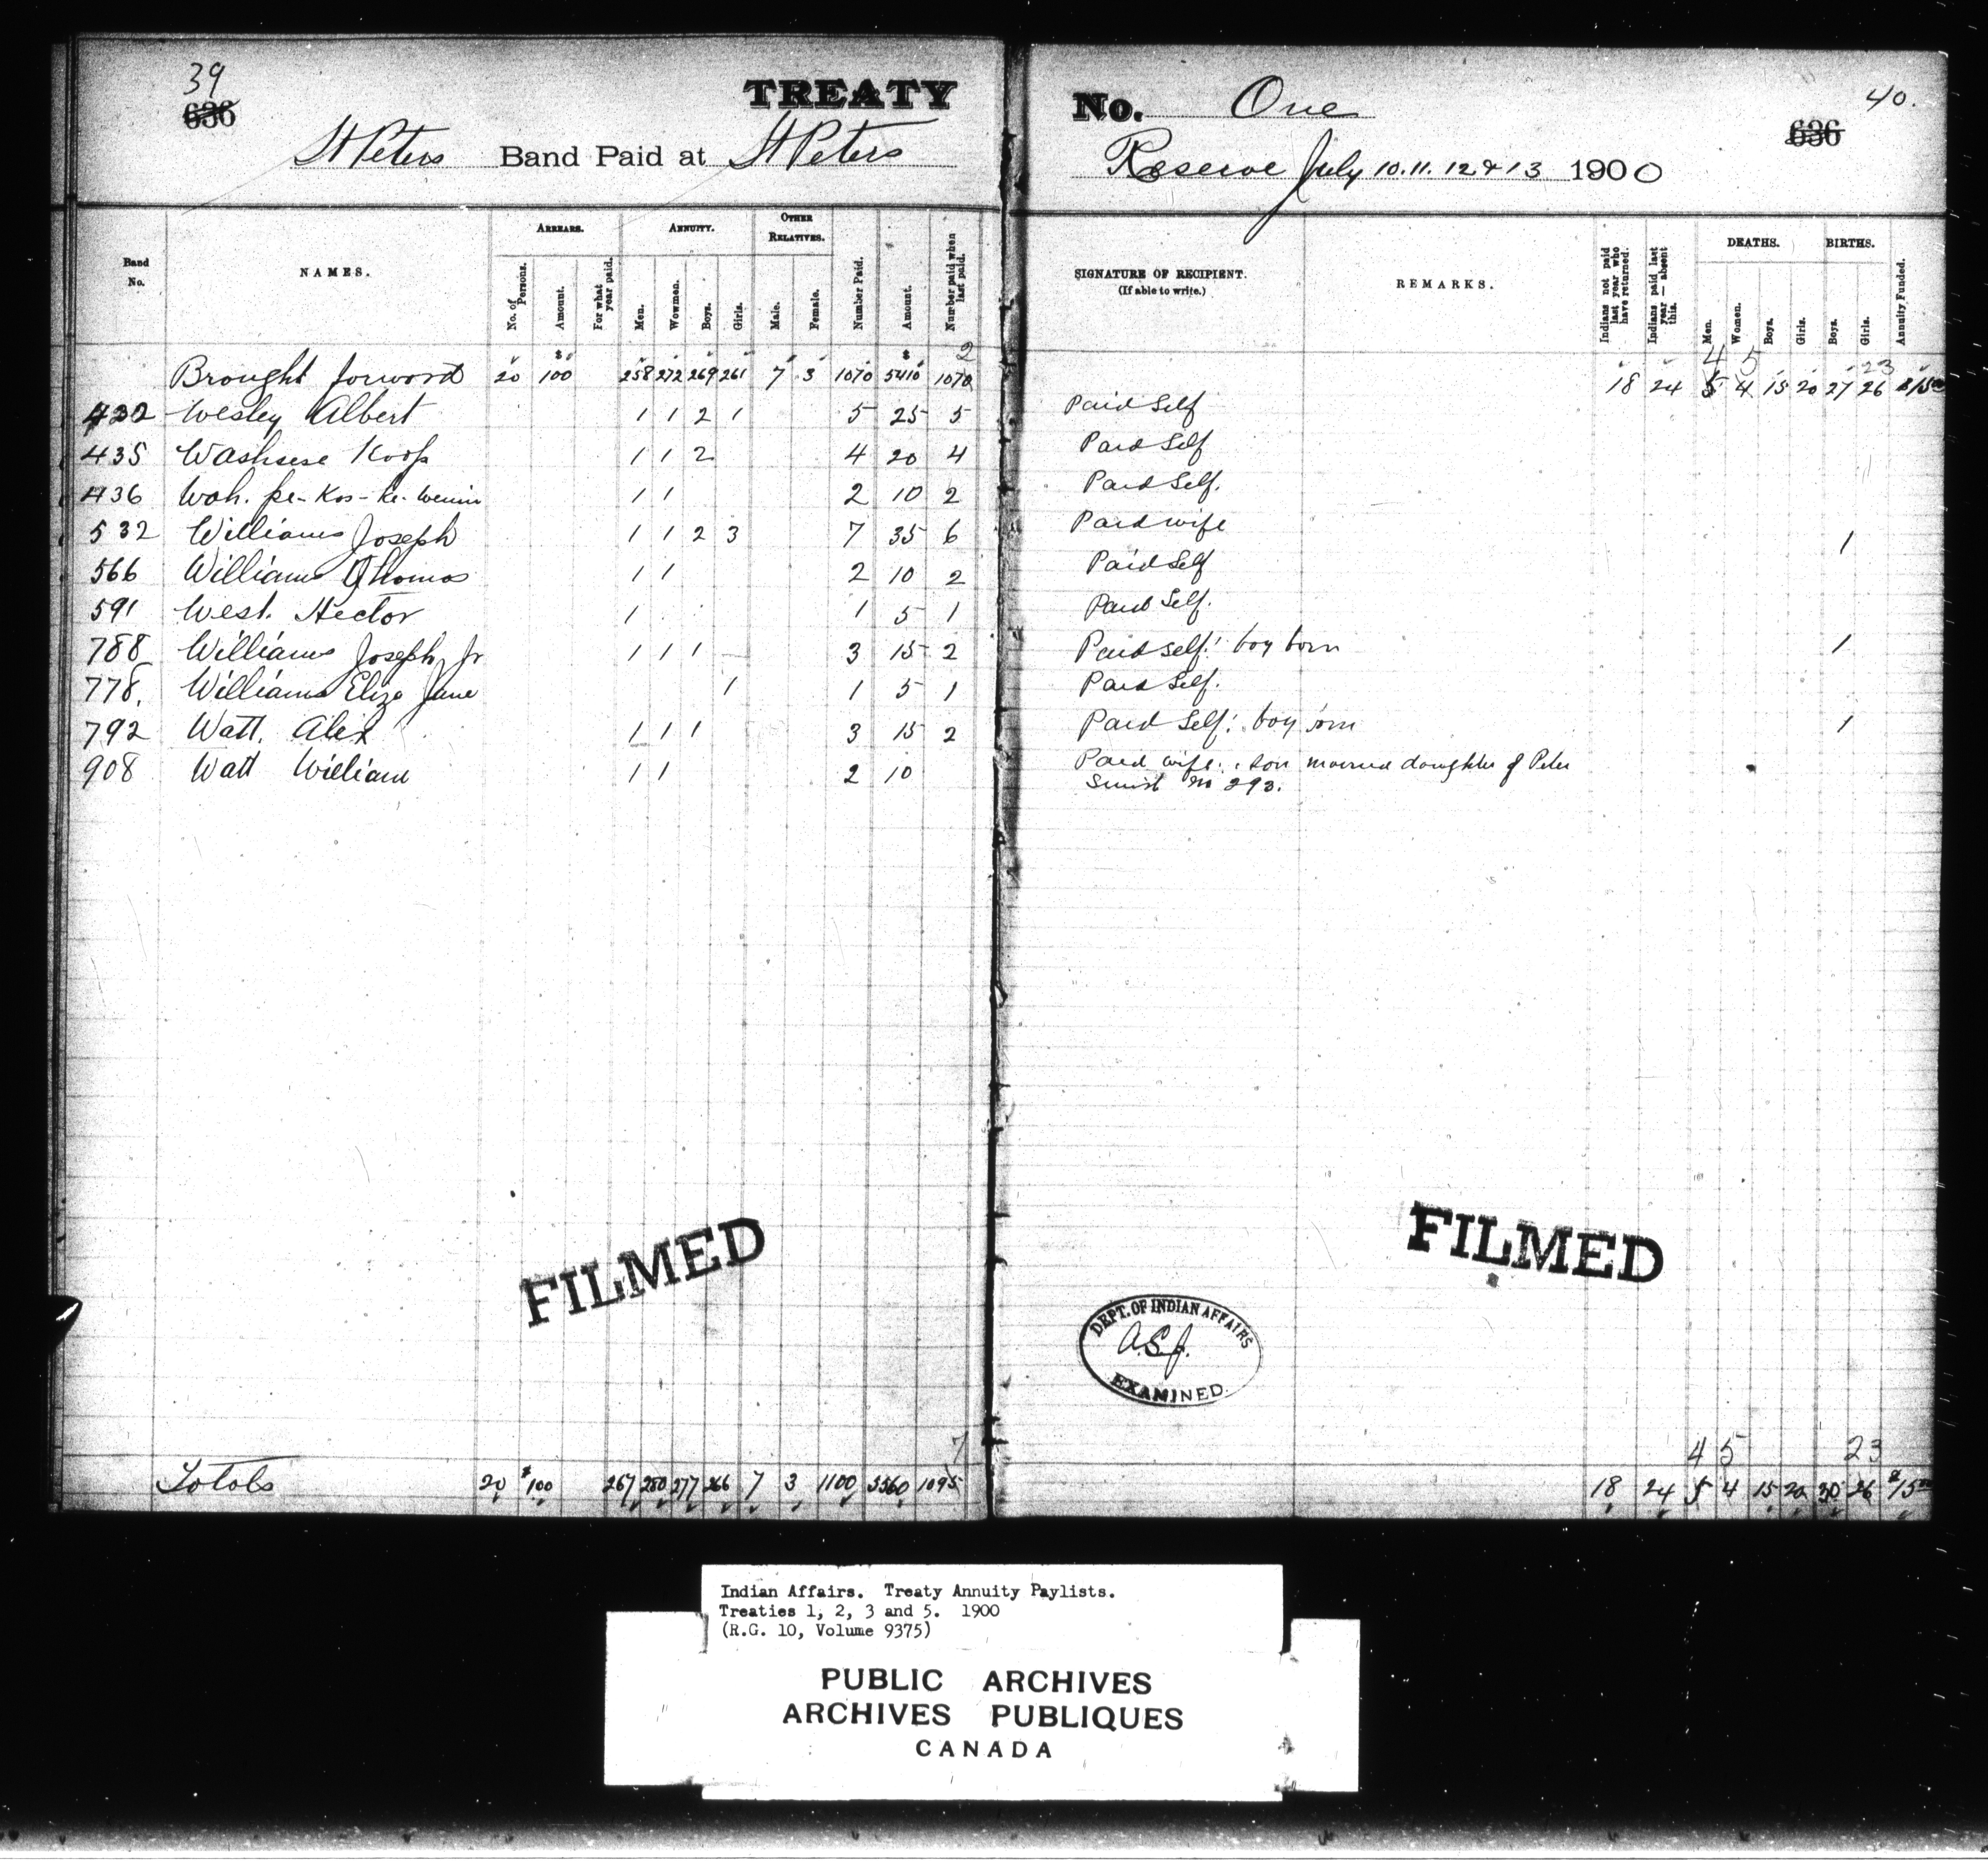 39
636
TREATY No. One
40.
636
St Peters Band Paid at St Peters Reserve July 10. 11. 12 & 13 1900
Band No. NAMES. ARREARS. No. of Persons. Amount. For what year paid. ANNUITY. Men. Wowmen. Boys. Girls. OTHER RELATIVES. Male. Female. Number Paid. Amount. Number paid when last paid. SIGNATURE OF RECIPIENT. (If able to write.) REMARKS. Indians not paid last year who have returned. Indians paid last year — absent this. DEATHS. Men. Women. Boys. Girls. BIRTHS. Boys. Girls. Annuity Funded.
2 4 5 23
Brought forword 20 $ 100 258 272 269 261 7 3 1070 $ 5410 1070 18 24 5 4 15 20 27 26
432 Wesley Albert 1 1 2 1 5 25 5 Paid Self
435 Washsese Koop 1 1 2 4 20 4 Paid Self
436 Wah. pe-Kos-Ke-wenin 1 1 2 10 2 Paid Self.
532 Williams Joseph 1 1 2 3 7 35 6 Paid wife 1
566 Williams Thomas 1 1 2 10 2 Paid Self
591 West. Hector 1 1 5 1 Paid Self.
788 Williams Joseph Jr 1 1 1 3 15 2 Paid self: boy born 1
778. Williams Eliza Jane 1 1 5 1 Paid Self.
792 Watt. Alex 1 1 1 3 15 2 Paid Self: boy born 1
908 Watt William 1 1 2 10 Paid wife: son married daughter of Peter
No 293.
FILMED
FILMED
DEPT. OF INDIAN AFFAIRS
A.S.J.
EXAMINED.
7 4 5 23
Totals 20 $100 267 280 277 266 7 3 1100 5560 1095 18 24 5 4 15 20 30 26 $15.00
Indian Affairs. Treaty Annuity Paylists.
Treaties 1, 2, 3 and 5. 1900
(R.G. 10, Volume 9375)
PUBLIC ARCHIVES
ARCHIVES PUBLIQUES
CANADA